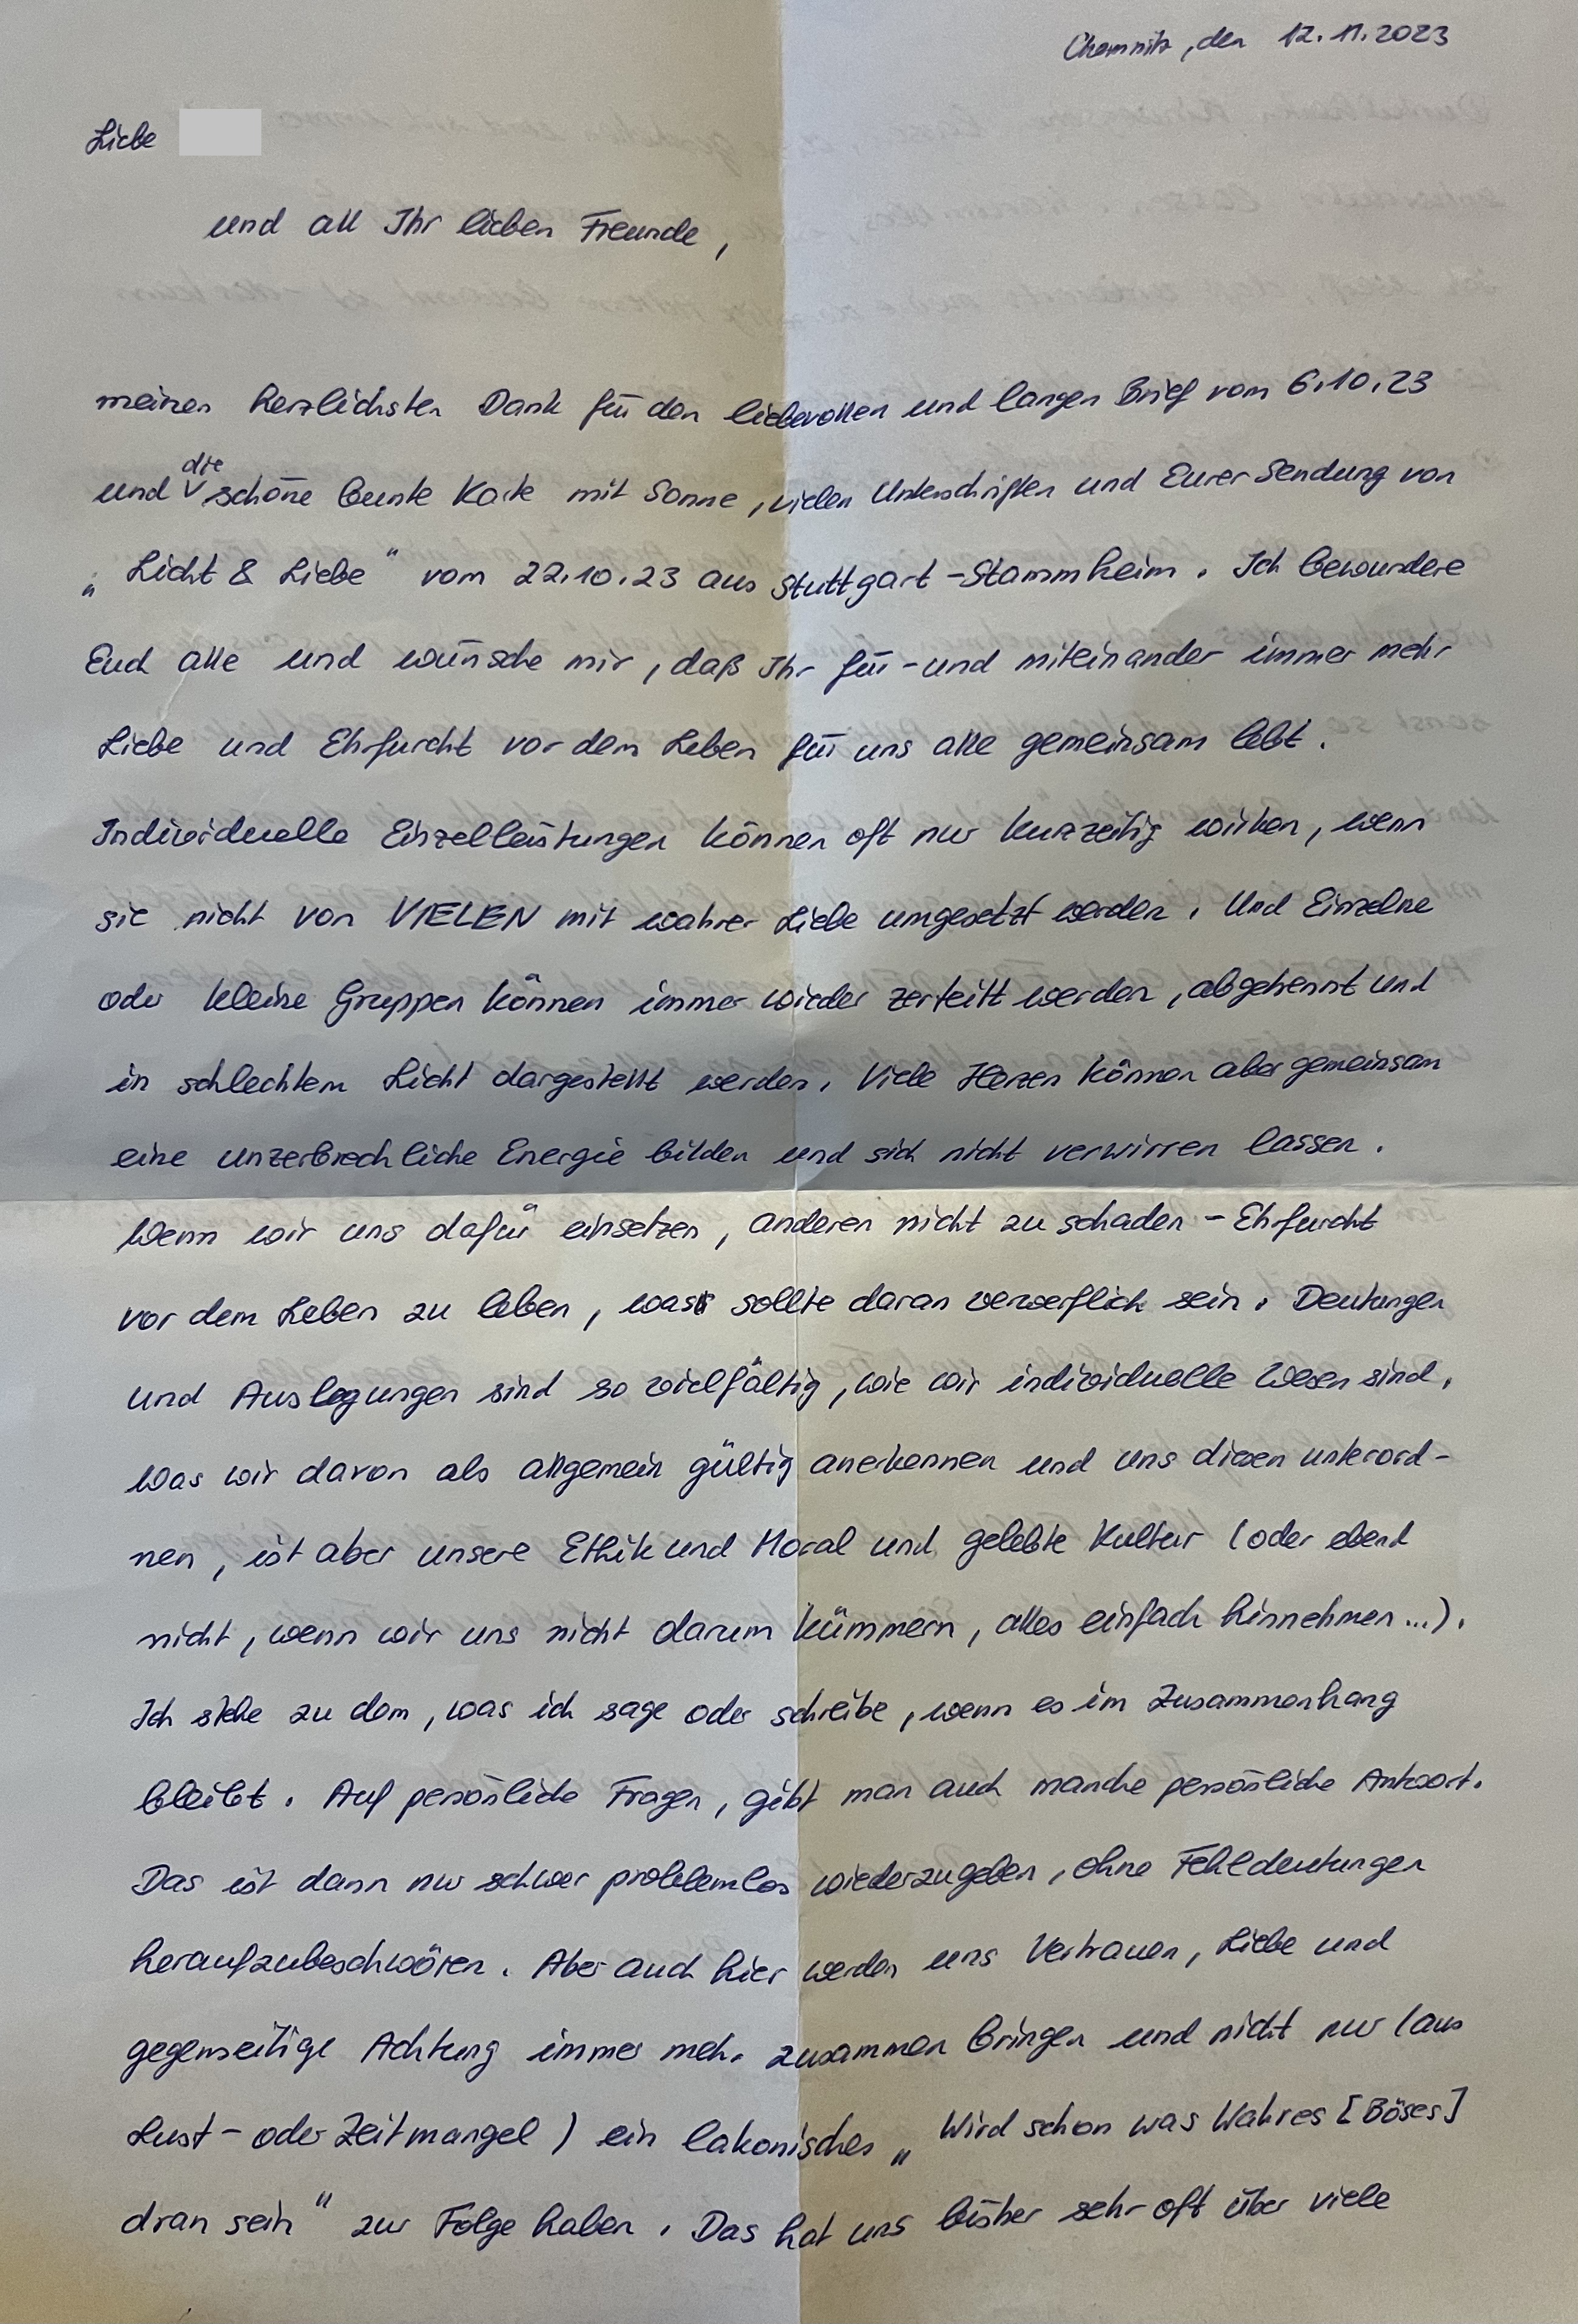 Chemnitz, den 12.11.2023
Liebe
und all Ihr lieben Freunde,
meinen herzlichsten Dank für den liebevollen und langen Brief vom 6.10.23
und die schöne bunte Karte mit Sonne, vielen Unterschriften und Eurer Sendung von
„Licht & Liebe“ vom 22.10.23 aus Stuttgart-Stammheim. Ich bewundere
Euch alle und wünsche mir, daß Ihr für- und miteinander immer mehr
Liebe und Ehrfurcht vor dem Leben für uns alle gemeinsam lebt.
Individuelle Einzelleistungen können oft nur kurzzeitig wirken, wenn
sie nicht von VIELEN mit wahrer Liebe umgesetzt werden. Und Einzelne
oder kleine Gruppen können immer wieder zerteilt werden, abgetrennt und
in schlechtem Licht dargestellt werden. Viele Herzen können aber gemeinsam
eine unzerbrechliche Energie bilden und sich nicht verwirren lassen.
Wenn wir uns dafür einsetzen, anderen nicht zu schaden - Ehrfurcht
vor dem Leben zu leben, was sollte daran verwerflich sein. Deutungen
und Auslegungen sind so vielfältig, wie wir individuelle Wesen sind.
Was wir davon als allgemein gültig anerkennen und uns diesen unterord-
nen, ist aber unsere Ethik und Moral und gelebte Kultur (oder ebend
nicht, wenn wir uns nicht darum kümmern, alles einfach hinnehmen...).
Ich stehe zu dem, was ich sage oder schreibe, wenn es im Zusammenhang
bleibt. Auf persönliche Fragen, gibt man auch manche persönliche Antwort.
Das ist dann nur schwer problemlos wiederzugeben, ohne Fehldeutungen
heraufzubeschwören. Aber auch hier werden uns Vertrauen, Liebe und
gegenseitige Achtung immer mehr zusammen bringen und nicht nur (aus
Lust- oder Zeitmangel) ein lakonisches „Wird schon was Wahres [Böses]
dran sein“ zur Folge haben. Das hat uns bisher sehr oft über viele